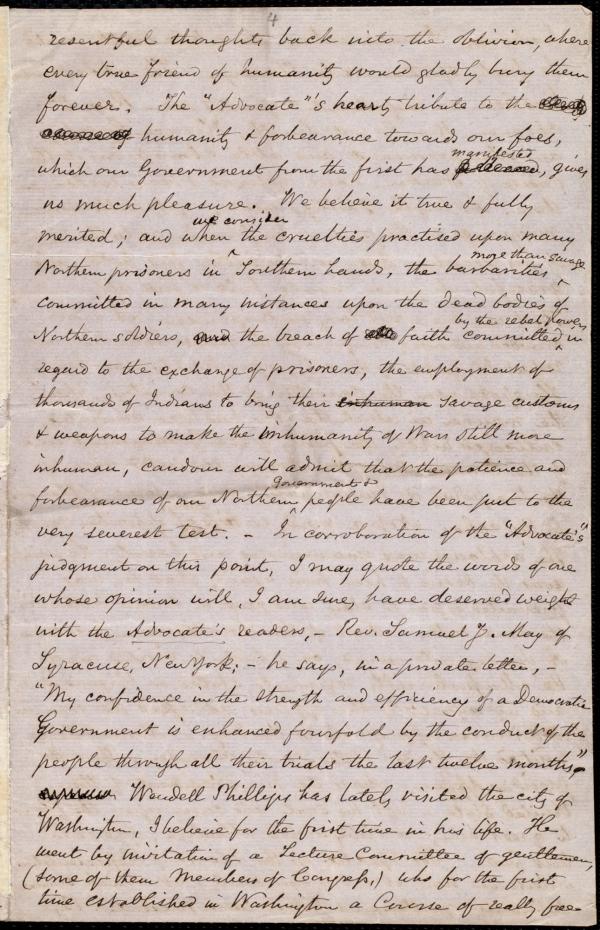 4
resentful thoughts back into the oblivion, where
every true friend of humanity would gladly bury them
forever. The "Advocate"'s hearty tribute to the
humanity & forbearance towards our foes,
manifested
which our Government from the first has , gives
us much pleasure. We believe it true & fully
we consider
merited; and when the cruelties practised upon many
more than savage
Northern prisoners in Southern hands, the barbarities
committed in many instances upon the dead bodies of
by the rebel powers
Northern soldiers, and the breach of faith committed in
regard to the exchange of prisoners, the employment of
thousands of Indians to bring their inhuman savage customs
& weapons to make the inhumanity of Wars still more
inhuman, candour will admit that the patience and
Government &
forbearance of our Northern people have been put to the
very severest test. – In corroboration of the "Advocate's"
judgment on this point, I may quote the words of one
whose opinion will, I am sure, have deserved weight
with the Advocate's readers, – Rev. Samuel J. May of
Syracuse, New York; – he says, in a private letter, –
"My confidence in the strength and efficiency of a Democratic
Government is enhanced fourfold by the conduct of the
people through all their trials the last twelve months."
Wendell Phillips has lately visited the city of
Washington, I believe for the first time in his life. He
went by invitation of a Lecture Committee of gentlemen,
(some of them Members of Congress,) who for the first
time established in Washington a Course of really free